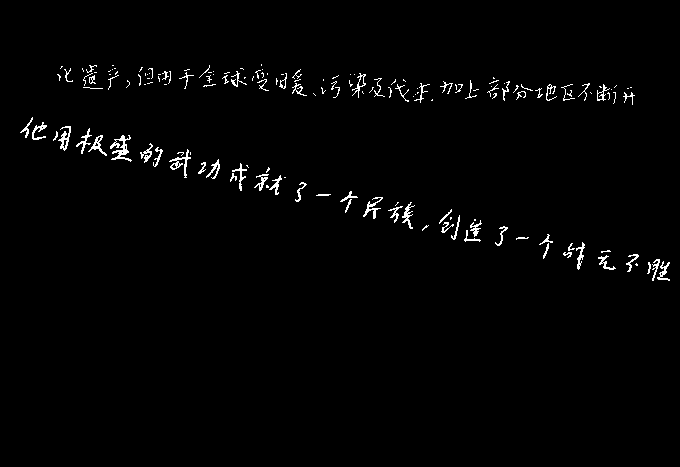 化遗产,但由于全球变暖、污染及伐木、加上部分地区不断开
他用极盛的武功成就了一个民族,创造了一个战无不胜